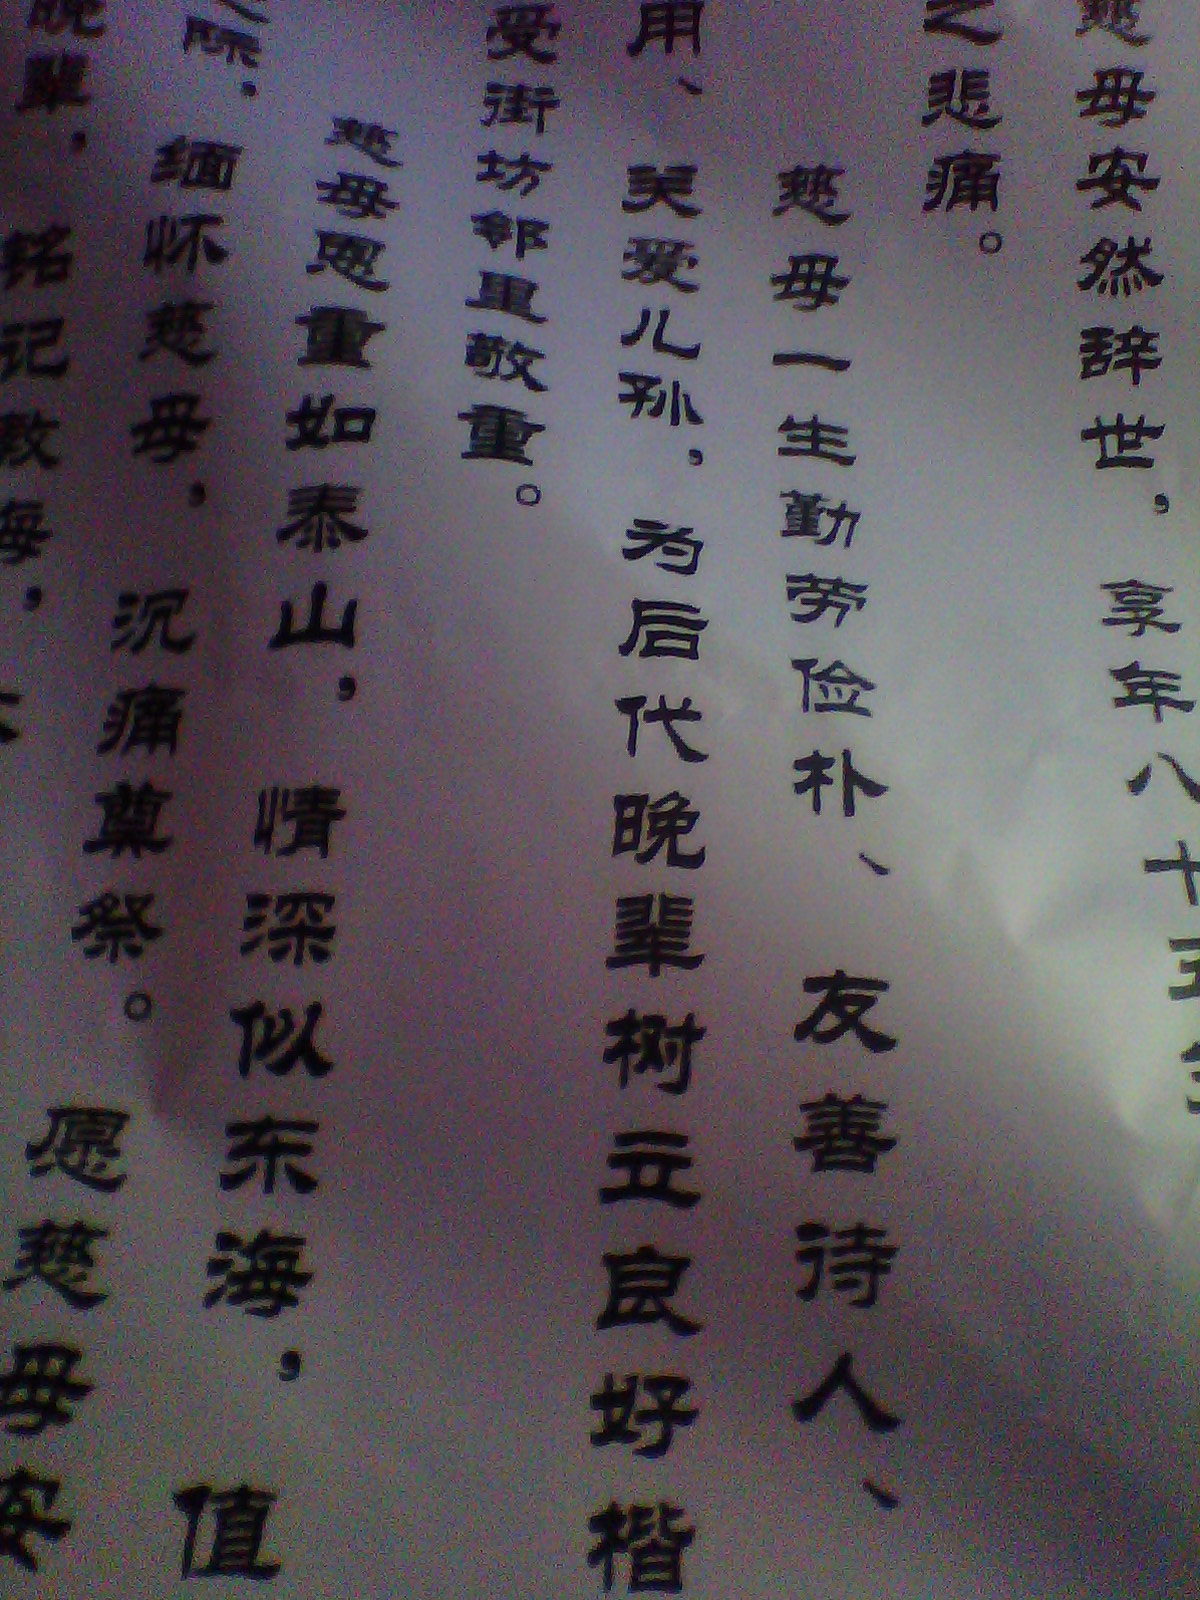 慈母安然辞世，享年八十五
之悲痛。
慈母一生勤劳俭朴、友善待人、
用、关爱儿孙，为后代晚辈树立良好楷
受街坊邻里敬重。
慈母恩重如泰山，情深似东海，值
之际，缅怀慈母，沉痛奠祭。愿慈母安
晚辈，铭记教诲，